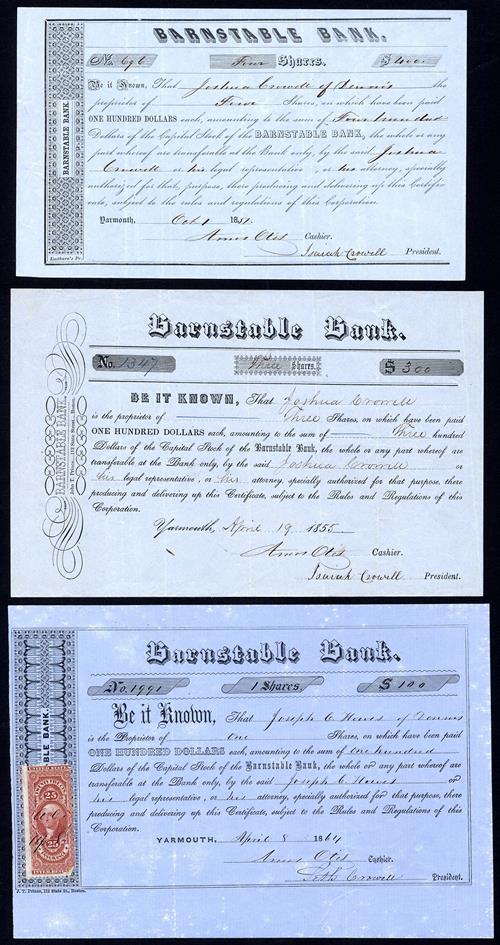 BARNSTABLE BANK.
No. 696 Four Shares. $400
Be it Known, That Joshua Crowell of Dennis the
proprietor of Four Shares, on which have been paid
ONE HUNDRED DOLLARS each, amounting to the sum of Four hundred
Dollars of the Capital Stock of the BARNSTABLE BANK, the whole or any
part whereof are transferable at the Bank only, by the said Joshua
Crowell or his legal representative, or his attorney, specially
authorized for that purpose, there producing and delivering up this Certifi-
cate, subject to the rules and regulations of this Corporation.
Yarmouth, Oct 1 1851.
Amos Otis Cashier.
Isaiah Crowell President.
BARNSTABLE BANK.
Eastburn's Pr.
Barnstable Bank.
No. 1347 Three Shares. $300
BE IT KNOWN, That Joshua Crowell
is the proprietor of Three Shares, on which have been paid
ONE HUNDRED DOLLARS each, amounting to the sum of Three hundred
Dollars of the Capital Stock of the Barnstable Bank, the whole or any part whereof are
transferable at the Bank only, by the said Joshua Crowell or
his legal representative, or his attorney, specially authorized for that purpose, there
producing and delivering up this Certificate, subject to the Rules and Regulations of this
Corporation.
Yarmouth, April 19 1855
Amos Otis Cashier.
Isaiah Crowell President.
BARNSTABLE BANK.
Barnstable Bank.
No. 1991 1 Shares $100
Be it Known, That Joseph C Howes of Dennis
is the Proprietor of one Shares, on which have been paid
ONE HUNDRED DOLLARS each, amounting to the sum of one hundred
Dollars of the Capital Stock of the Barnstable Bank, the whole or any part whereof are
transferable at the Bank only, by the said Joseph C Howes or
his legal representative, or his attorney, specially authorized for that purpose, there
producing and delivering up this Certificate, subject to the Rules and Regulations of this
Corporation.
YARMOUTH, April 8 1864
Amos Otis Cashier.
Seth Crowell President.
BLE BANK.
25
25
J. T. Pitman, 112 State St., Boston.